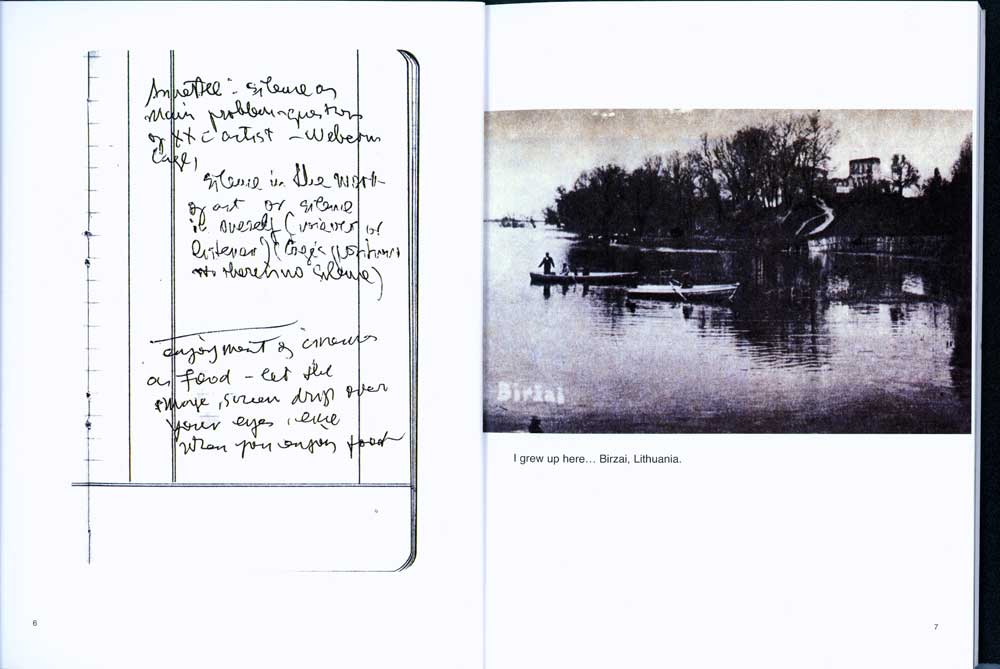 Annette: silence as
main problem-question
of XX c artist – Webern
Cage,
silence in the work
of art or silence
in oneself (viewer or
listener) (Cage's
there is no silence)
enjoyment of cinema
as food – let the
image, screen drip over
your eyes, like
when you enjoy food
6
Biržai
I grew up here… Birzai, Lithuania.
7